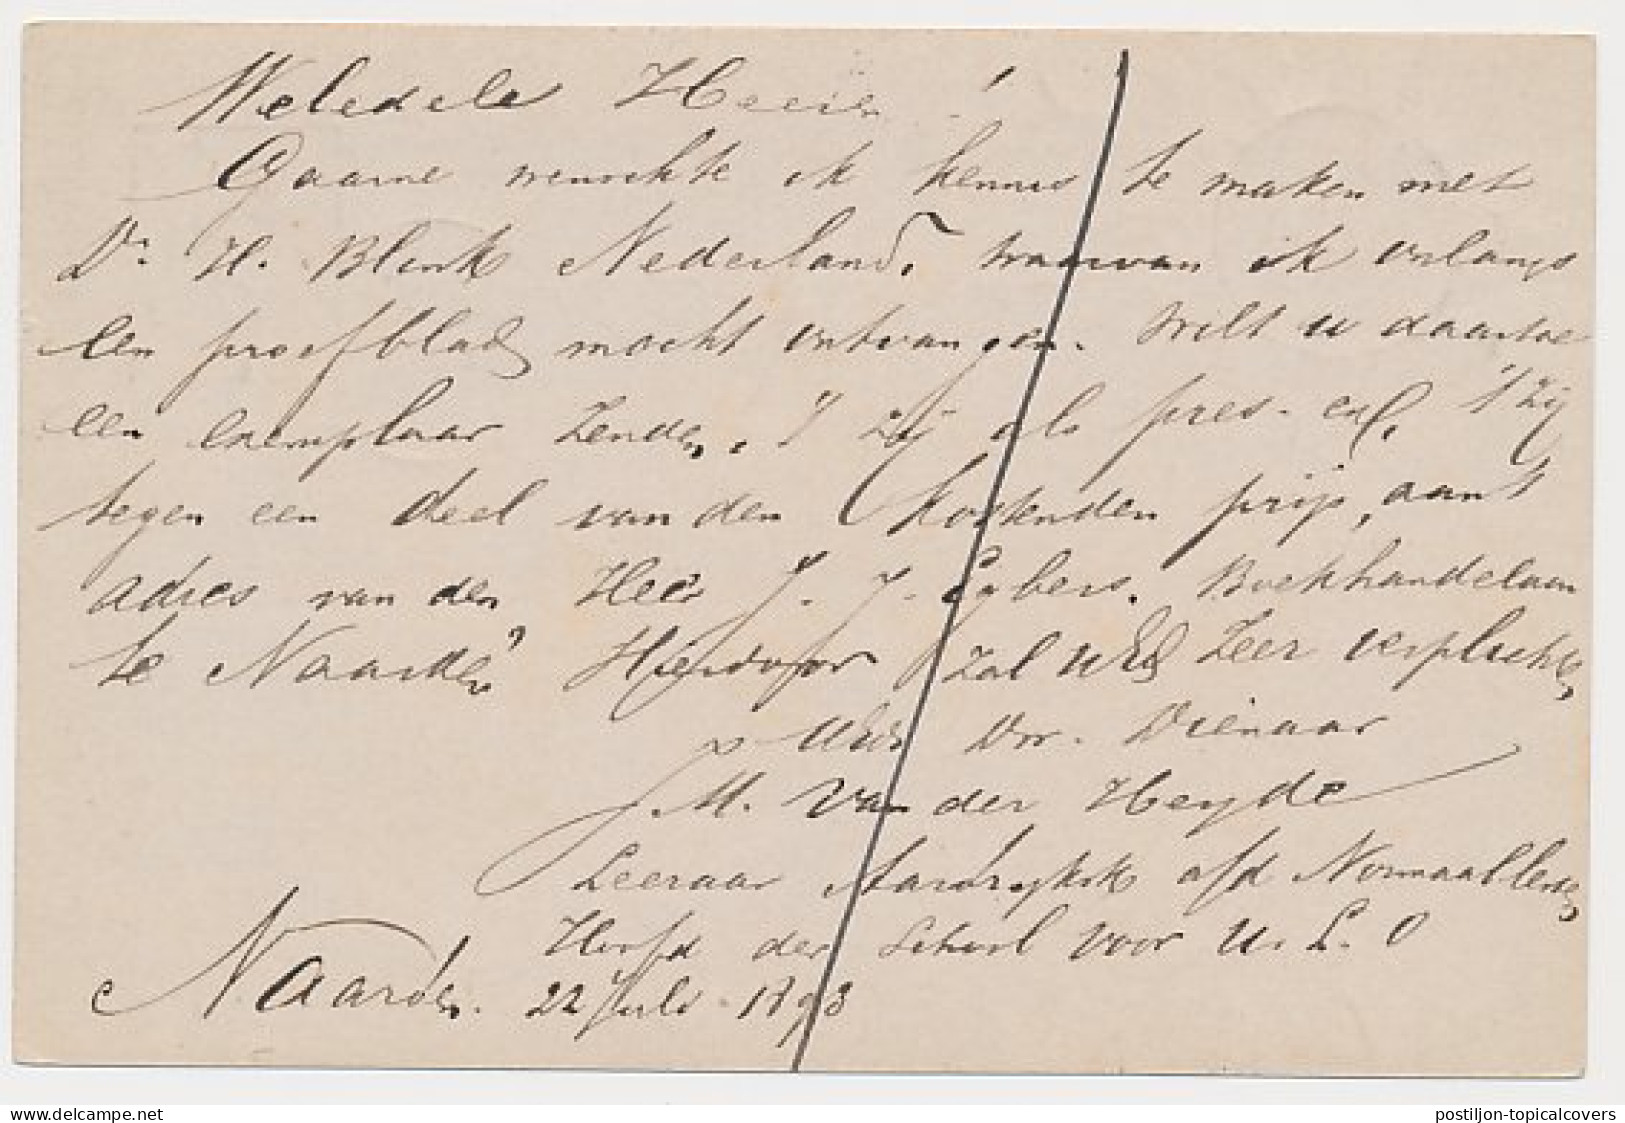 Weledele Heeren!
Gaarne wenschte ik kennis te maken met
Dr. H. Blink Nederland, waarvan ik onlangs
een proefblad mocht ontvangen. Wilt u daartoe
een exemplaar zenden, 't zij als pres. ex, 't zij
tegen een deel van den kostenden prijs, aan 't
adres van den Heer J. J. Eybers. Boekhandelaar
te Naarden? Hierdoor zal UEd zeer verplichten
UEds Dw. Dienaar
J. M. van der Heyde
Leeraar Aardrijksk a/d Normaallessen
Hoofd der School voor U. L. O
Naarden. 22 Juli 1893
www.delcampe.net
postiljon-topicalcovers